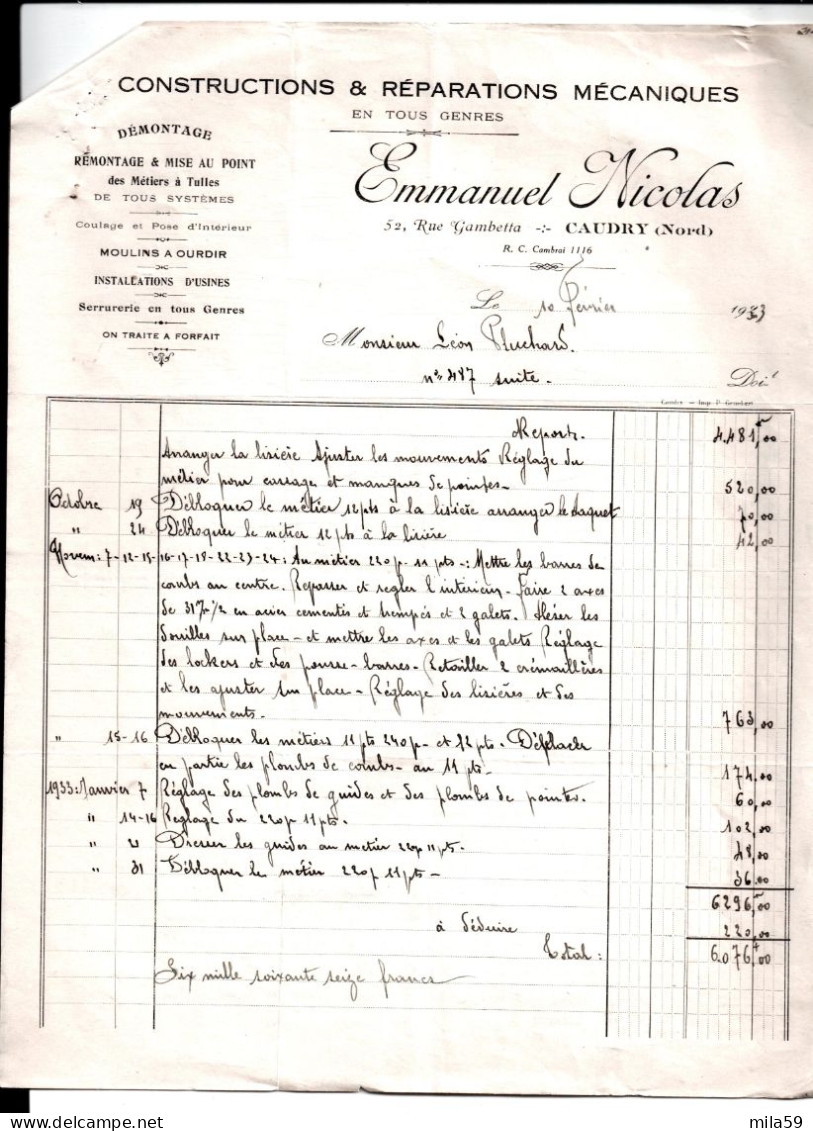 CONSTRUCTIONS & RÉPARATIONS MÉCANIQUES
EN TOUS GENRES
DÉMONTAGE
REMONTAGE & MISE AU POINT
des Métiers à Tulles
DE TOUS SYSTÈMES
Coulage et Pose d'Intérieur
MOULINS A OURDIR
INSTALLATIONS D'USINES
Serrurerie en tous Genres
ON TRAITE A FORFAIT
Emmanuel Nicolas
52, Rue Gambetta -:- CAUDRY (Nord)
R. C. Cambrai 1116
Le 10 février 1933
Monsieur Léon Pluchard.
n° 487 suite. Doit
Report. 4.481,00
Arranger la lisière Ajuster les mouvements Réglage du
métier pour cassage et manques de pointes - 520,00
Octobre 19 Débloquer le métier 12pts à la lisière arranger le taquet 70,00
" 24 Débloquer le métier 12 pts à la lisière 42,00
Novem: 7-12-15-16-17-18-22-23-24: Au métier 220p - 11 pts -: Mettre les barres de
combs au centre. Repasser et regler l'intérieur - Faire 2 axes
de 31 m/m 1/2 en acier cementés et trempés et 2 galets. Aléser les
douilles sur place - et mettre les axes et les galets Réglage
des lockers et des pousse-barres - Retailler 2 crémaillères
et les ajuster sur place - Réglage des lisières et des
mouvements. 763,00
" 15-16 Débloquer les métiers 11 pts 240p - et 12 pts - Déplacer
en partie les plombs de combs - au 11 pts - 174.00
1933: Janvier 7 Réglage des plombs de guides et des plombs de pointes. 60,00
" 14-16 Reglage du 220p 11pts. 102,00
" 21 Dresser les guides au metier 220p 11 pts. 48,00
" 31 Débloquer le métier 220p 11 pts - 36.00
6296,00
à déduire 220,00
Total: 6.076,00
Six mille soixante seize francs
mila59